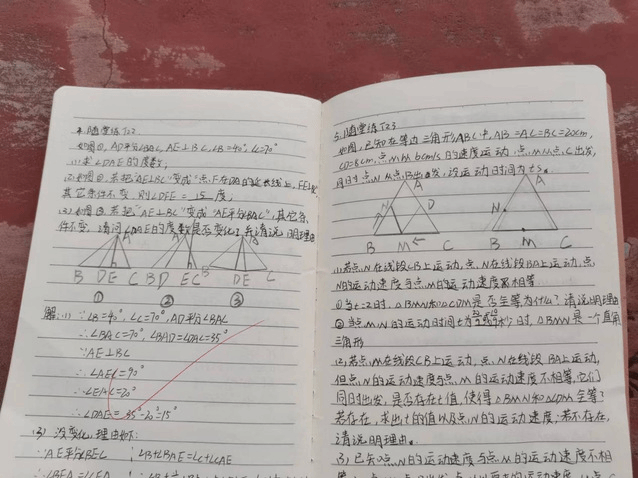 4.随堂练T22
如图①,AD平分∠BAC,AE⊥BC,∠B=40°,∠C=70°
(1)求∠DAE的度数;
(2)如图②,若把"AE⊥BC"变成"点F在DA的延长线上,FE⊥BC",
其它条件不变,则∠DFE=15度;
(3)如图③,若把"AE⊥BC"变成"AE平分∠BAC",其它条
件不变,请问∠DAE的度数是否变化?并请说明理由
A
B D E C B D E C B D E C
① ② ③
解:(1)∵∠B=40°,∠C=70°,AD平分∠BAC
∴∠BAC=70°,∠BAD=∠DAC=35°
∵AE⊥BC
∴∠AEC=90°
∴∠EAC=20°
∴∠DAE=35°-20°=15°
(3)没变化,理由如下:
∵AE平分∠BEC ∴∠B+∠BAE=∠C+∠CAE
5.随堂练T23
如图,已知在等边三角形ABC中,AB=AC=BC=20cm,
CD=8cm,点M以6cm/s的速度运动,点M从点C出发,
同时点N从点B出发,设运动时间为ts,
A A
N D N
B M← C B M C
(1)若点M在线段CB上运动,点N在线段BA上运动,点
N的运动速度与点M的运动速度相等
①当t=2时,△BMN和△CDM是否全等为什么?请说明理由
②当点M,N的运动时间t为 时,△BMN是一个直角
三角形
(2)若点M在线段CB上运动,点N在线段BA上运动,
但点N的运动速度与点M的运动速度不相等,它们
同时出发,是否存在t值,使得△BMN和△CDM全等?
若存在,求出t的值以及点N的运动速度;若不存在,
请说明理由。
(3)已知点N的运动速度与点M的运动速度不相